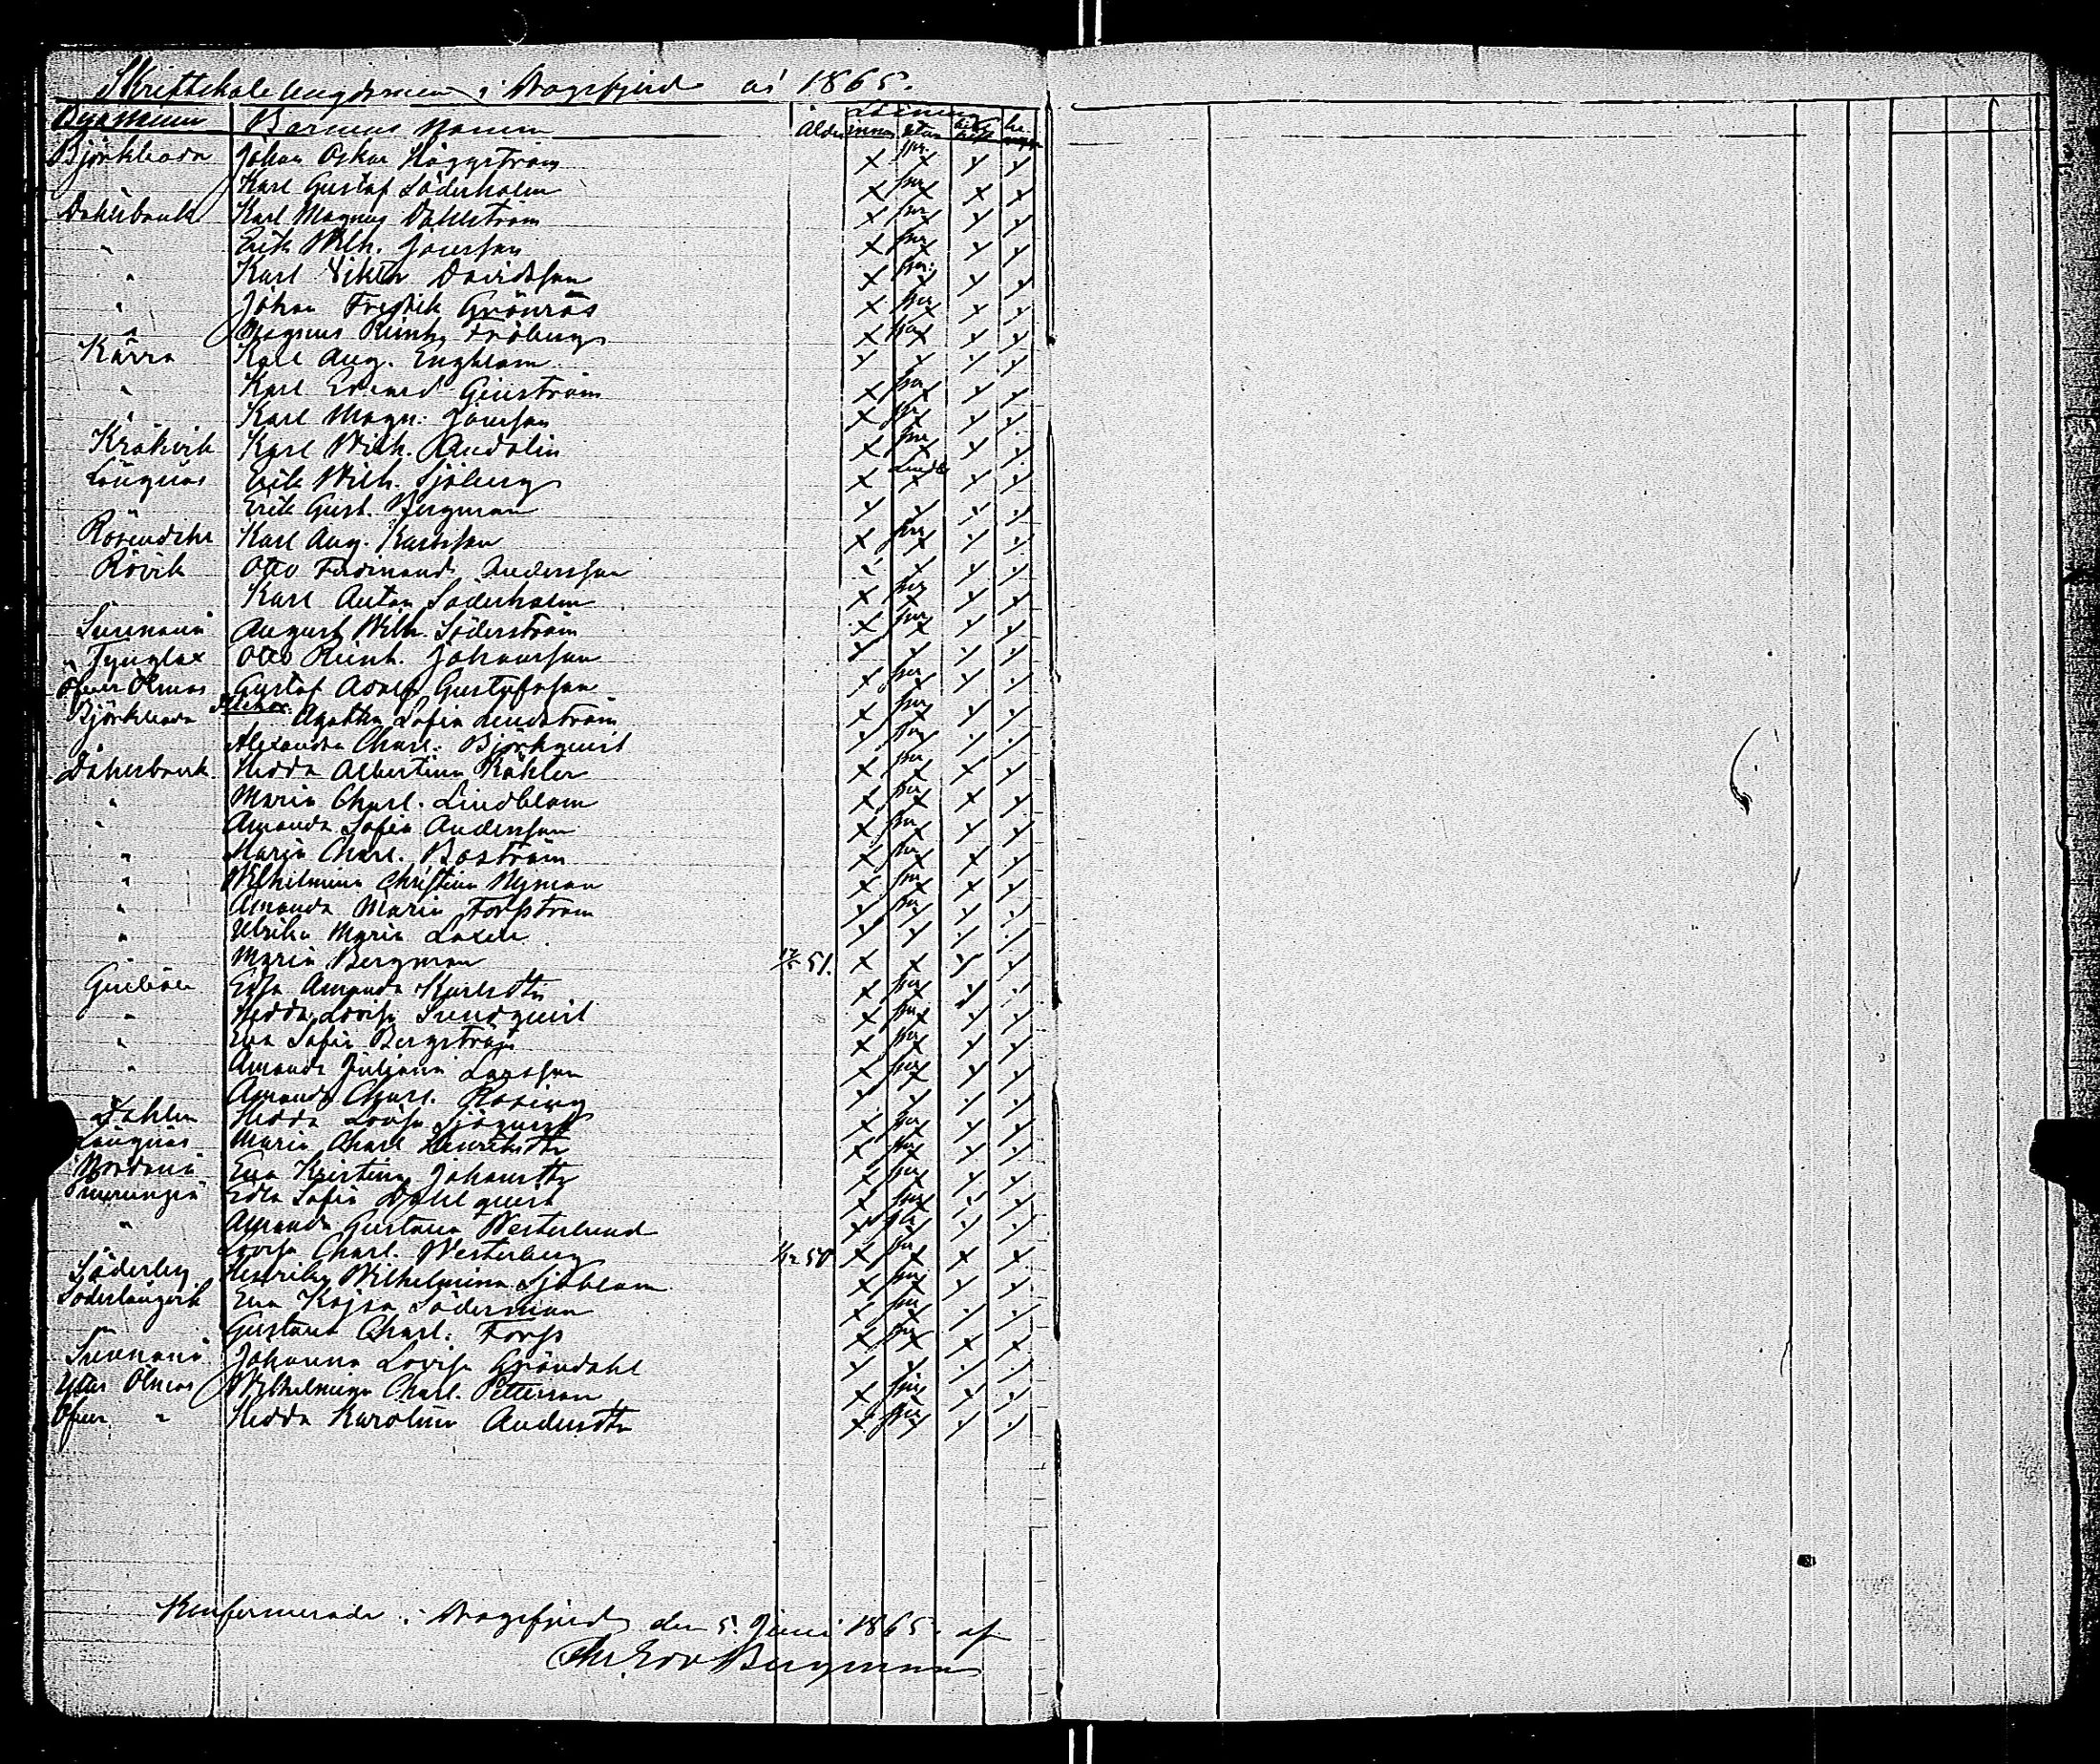 Skriftskole ungdomen i Dragsfjerd år 1865.
Byanamn Barnens Namn Ålder Läsning innan utan
Björkboda Johan Oskar Häggström x spr. x
Karl Gustaf Söderholm x spr x x x
Dahlsbruk Karl Magnus Dahlström x spr x
" Erik Wilh. Jansson x spr x
" Karl Viktor Davidsson x spr. x
" Johan Fredrik Grönroos x spr x
" Magnus Reinh. Fröberg x spr x
Kärra Karl Aug. Engblom
" Karl Edvard Grenström x spr x
" Karl Magn. Jansson x spr x
Kråkvik Karl Wilh. Randelin x spr x
Långnäs Erik Wilh. Sjöberg x x
Erik Gust. Bergman
Rosendahl Karl Aug. Karlsson x spr x
Rövik Otto Ferdinand Andersson
Karl Anton Söderholm x spr x
Sunnanå August Wilh. Söderström x spr x
" Tynglax Otto Reinh. Johansson
Öfver Ölmos Gustaf Adolf Gustafsson x spr x
Flickor.
Björkboda Agatha Sofia Lindström x spr x
Alexandra Charl. Björkqvist spr
Dahlsbruk Hedda Albertina Köhler x spr x x
" Maria Charl. Lindblom x spr x x
" Amanda Sofia Andersson x spr x
" Maria Charl. Boström x spr x x
" Wilhelmina Christina Nyman x spr x x
" Amanda Maria Forsström spr
" Ulrika Maria
" Maria Bergman 51. x x
Edla Amanda Karlsdtr x spr x
" Hedda Lovisa Sundqvist x spr x
" Eva Sofia Bergström x spr x
" Amanda Juliana Larsson x spr x
Amanda Charl. Rosing
Dahlen Hedda Lovisa Sjöqvist x spr x
Långnäs Maria Charl. Henriksdtr x spr x
Nordanå Eva Kristina Johansdtr x spr x
Edla Sofia Dahlqvist x spr x
" Amanda Gustava Westerlund
Lovisa Charl. Westerberg 1/12 50 x spr x x x
Söderby Henrika Wilhelmina Sjöblom x spr x
Söderlångvik Eva Kajsa Söderman x spr x
" Gustava Charl. Forss x spr x x x
Sunnanå Johanna Lovisa Gröndahl
Ytter Ölmos Wilhelmina Charl. Petterson x spr x
Öfver " Hedda Karolina Andersdtr x spr x
Konfirmerade i Dragsfjerd den 5. Juni 1865. af
Edv Bergman